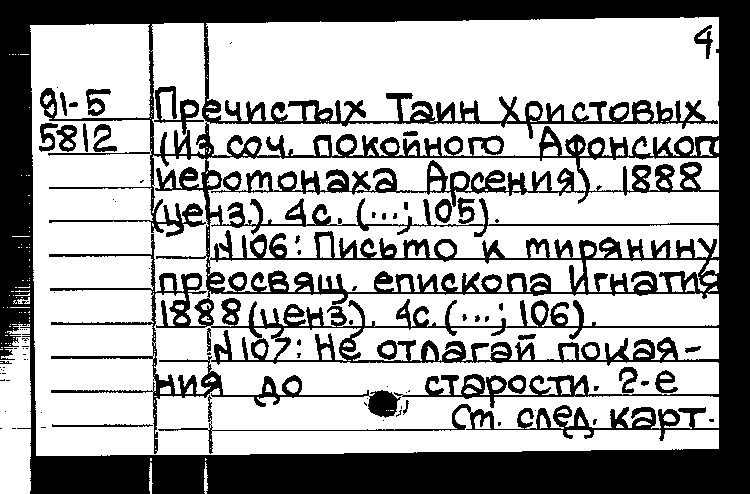 4.
91-5 Пречистых Таин Христовых
5812 (Из соч. покойного Афонского
иеромонаха Арсения). 1888
(ценз.). 4с. (...; 105).
N106: Письмо к мирянину
преосвящ. епископа Игнатия
1888 (ценз.). 4с. (...; 106).
N107: Не отлагай покая-
ния до старости. 2-е
См. след. карт.